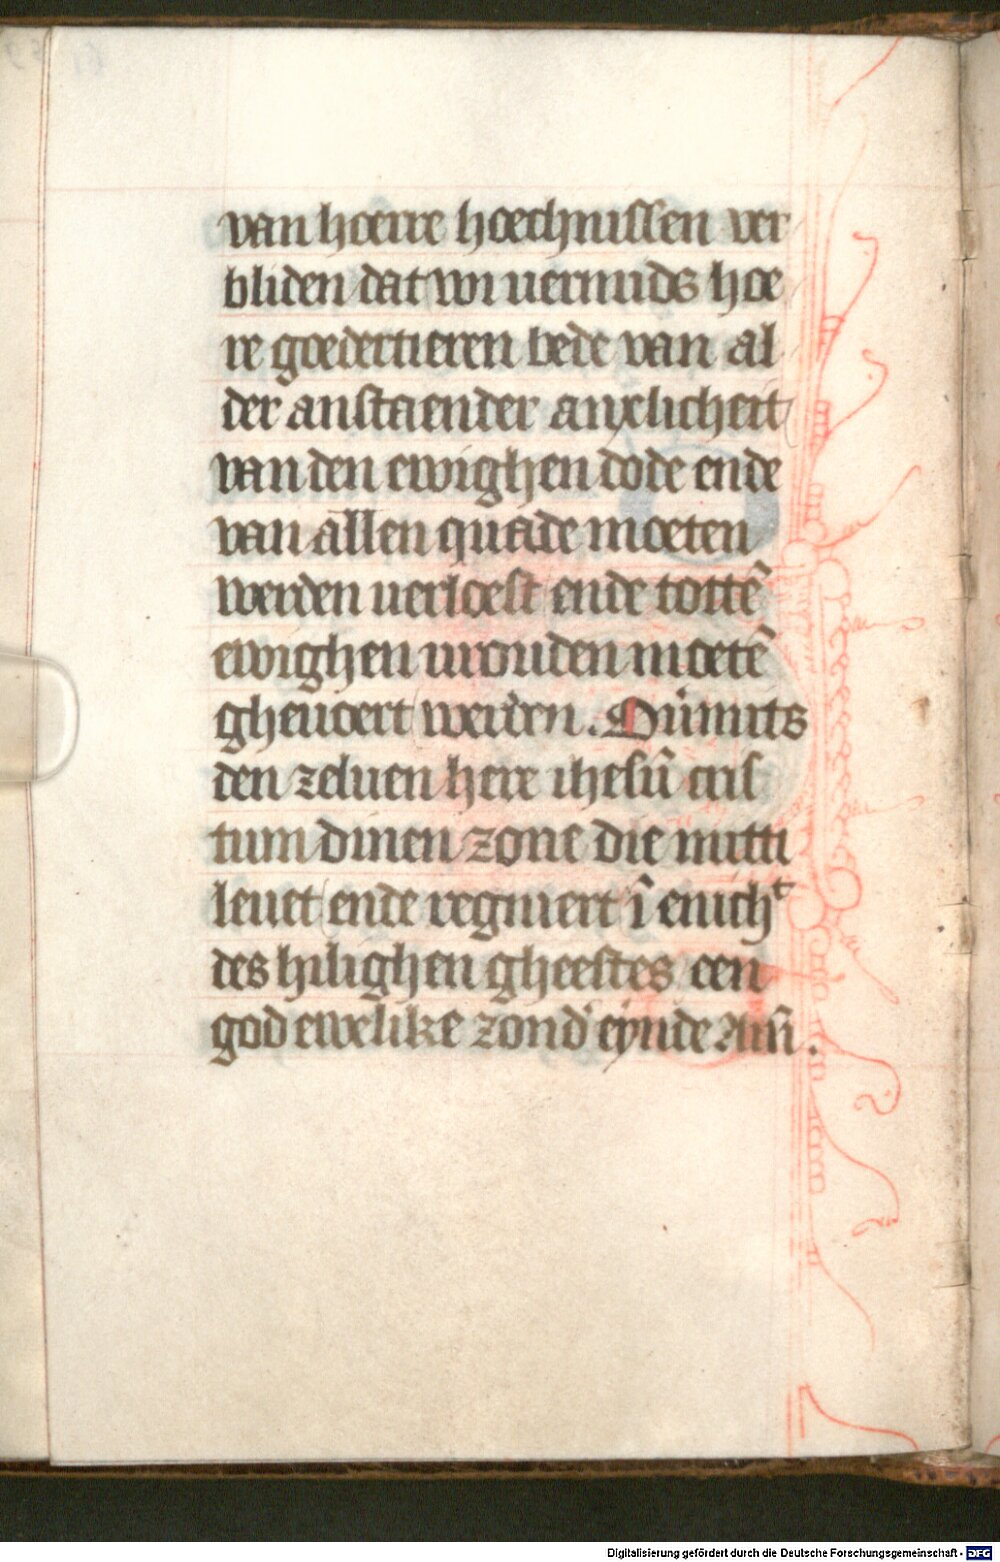 van hoerre hoechnissen ver
bliden dat wi uermids hoe
re goedertieren bede van al
der anstaender anxlicheit
van den ewighen dode ende
van allen quade moeten
werden uerloest ende tottē
ewighen urouden moetē
gheuoert werden. Oūmits
den zeluen here ihesū cris
tum dinen zone die mitti
leuet ende regniert ī enichᵗ
des hilighen gheestes een
god ewelike zond' eynde Am̄.
Digitalisierung gefördert durch die Deutsche Forschungsgemeinschaft - DFG